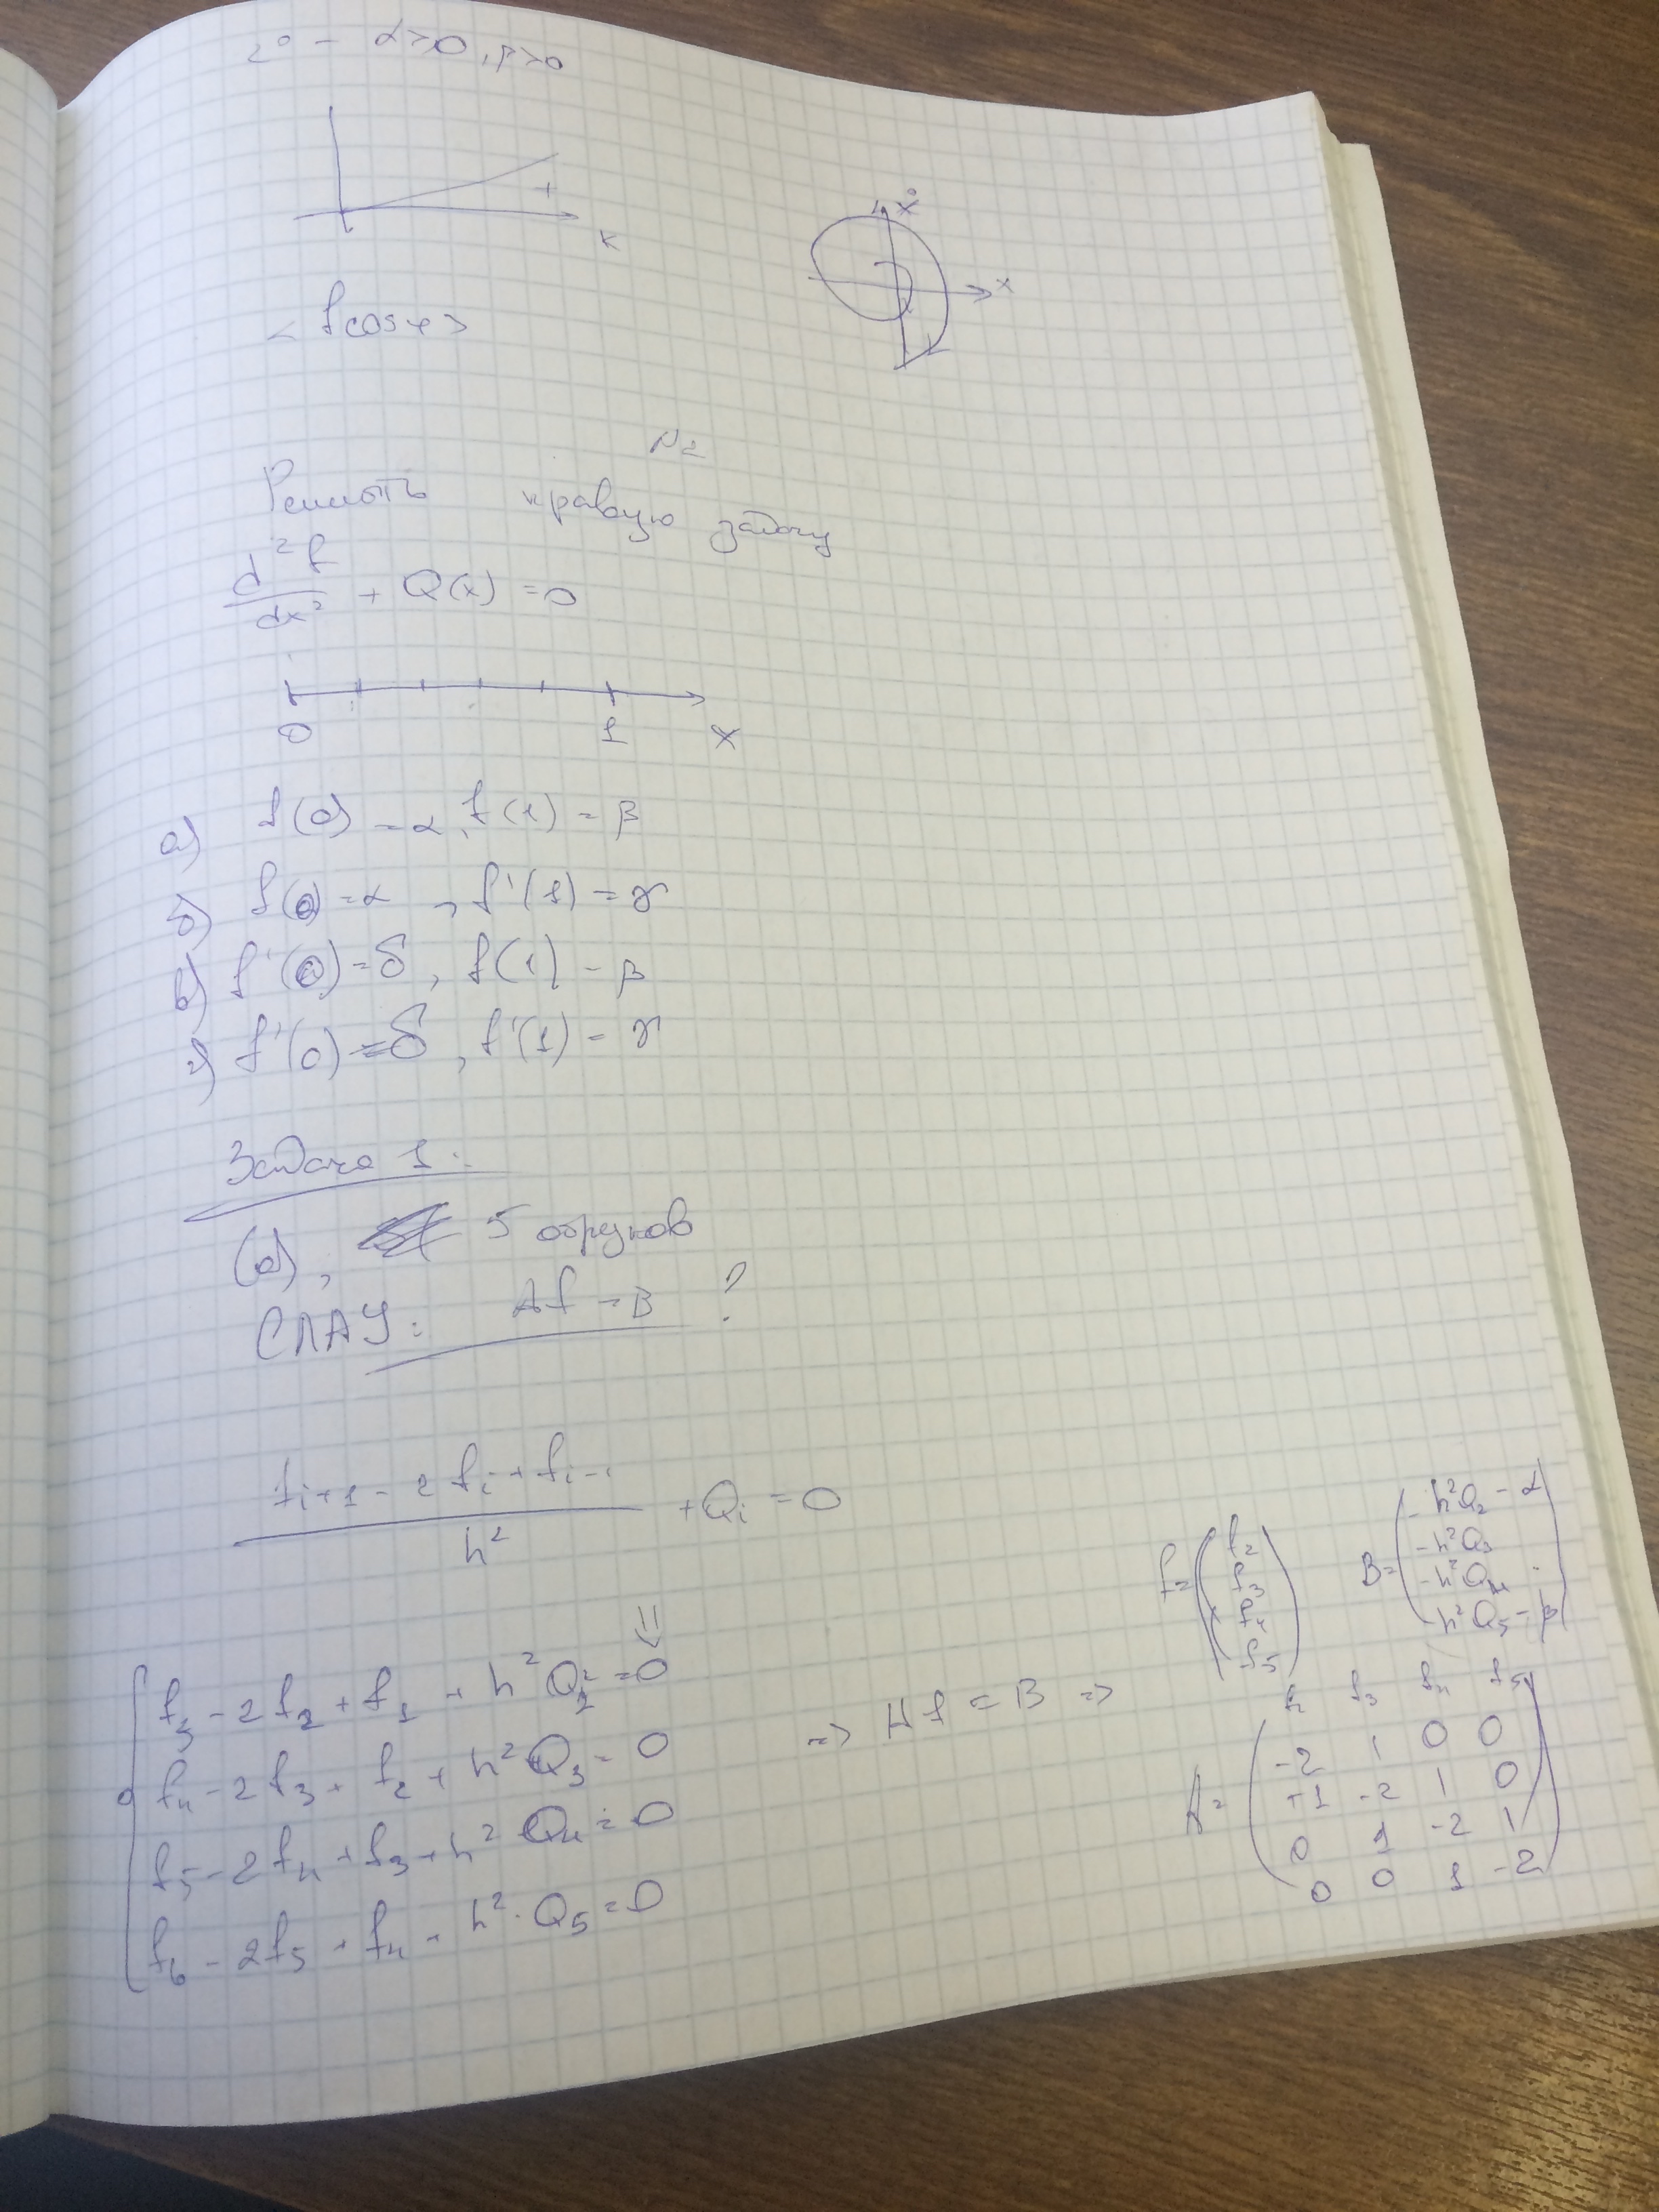 2° - α>0, β>0
x
ẋ
x
<f cos φ>
N2
Решить краевую задачу
d²f/dx² + Q(x) = 0
0 1 x
а) f(0) = α, f(1) = β
б) f(0) = α, f'(1) = γ
в) f'(0) = δ, f(1) = β
г) f'(0) = δ, f'(1) = γ
Задача 1:
(а), 5 отрезков
СЛАУ: Af = B ?
(f_{i+1} - 2f_i + f_{i-1})/h² + Q_i = 0
⇓
f₃ - 2f₂ + f₁ + h²Q₂ = 0
f₄ - 2f₃ + f₂ + h²Q₃ = 0
f₅ - 2f₄ + f₃ + h²Q₄ = 0
f₆ - 2f₅ + f₄ + h²·Q₅ = 0
=> Af = B =>
f = (f₂
f₃
f₄
f₅)
B = (-h²Q₂ - α
-h²Q₃
-h²Q₄
-h²Q₅ - β)
f₂ f₃ f₄ f₅
A = (-2 1 0 0
+1 -2 1 0
0 1 -2 1
0 0 1 -2)